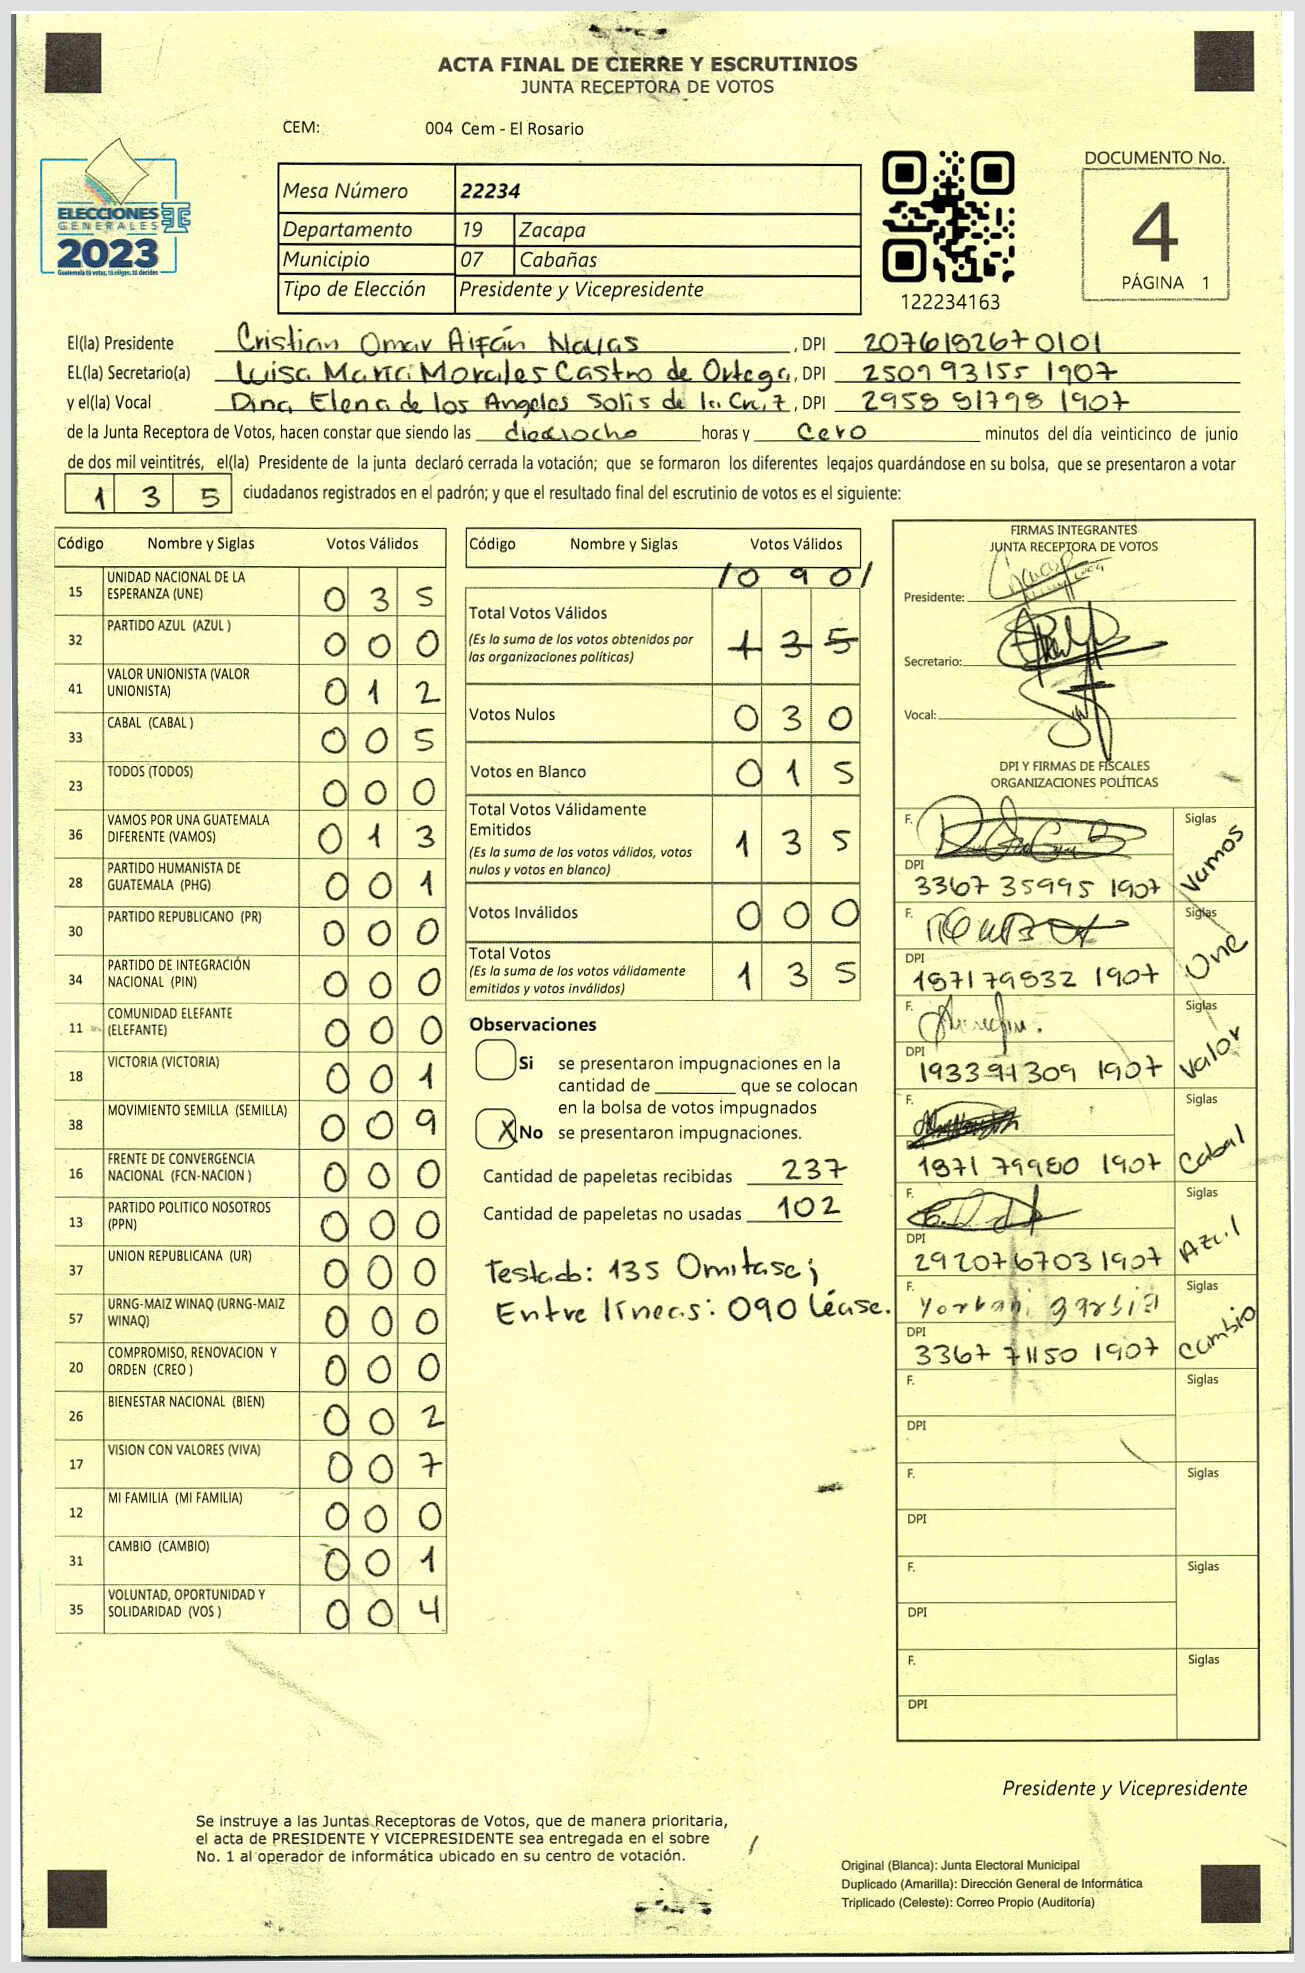 ACTA FINAL DE CIERRE Y ESCRUTINIOS
JUNTA RECEPTORA DE VOTOS
CEM: 004 Cem - El Rosario
ELECCIONES
GENERALES
2023
Guatemala tú votas, tú eliges, tú decides
Mesa Número 22234
Departamento 19 Zacapa
Municipio 07 Cabañas
Tipo de Elección Presidente y Vicepresidente
122234163
DOCUMENTO No.
4
PÁGINA 1
El(la) Presidente Cristian Omar Aifán Navas, DPI 207618267 0101
EL(la) Secretario(a) Luisa María Morales Castro de Ortega, DPI 250993155 1907
y el(la) Vocal Dina Elena de los Angeles Solis de la Cruz, DPI 2958 81798 1907
de la Junta Receptora de Votos, hacen constar que siendo las dieciocho horas y cero minutos del día veinticinco de junio
de dos mil veintitrés, el(la) Presidente de la junta declaró cerrada la votación; que se formaron los diferentes legajos quardándose en su bolsa, que se presentaron a votar
1 3 5 ciudadanos registrados en el padrón; y que el resultado final del escrutinio de votos es el siguiente:
Código Nombre y Siglas Votos Válidos
15 UNIDAD NACIONAL DE LA ESPERANZA (UNE) 0 3 5
32 PARTIDO AZUL (AZUL ) 0 0 0
41 VALOR UNIONISTA (VALOR UNIONISTA) 0 1 2
33 CABAL (CABAL ) 0 0 5
23 TODOS (TODOS) 0 0 0
36 VAMOS POR UNA GUATEMALA DIFERENTE (VAMOS) 0 1 3
28 PARTIDO HUMANISTA DE GUATEMALA (PHG) 0 0 1
30 PARTIDO REPUBLICANO (PR) 0 0 0
34 PARTIDO DE INTEGRACIÓN NACIONAL (PIN) 0 0 0
11 COMUNIDAD ELEFANTE (ELEFANTE) 0 0 0
18 VICTORIA (VICTORIA) 0 0 1
38 MOVIMIENTO SEMILLA (SEMILLA) 0 0 9
16 FRENTE DE CONVERGENCIA NACIONAL (FCN-NACION ) 0 0 0
13 PARTIDO POLITICO NOSOTROS (PPN) 0 0 0
37 UNION REPUBLICANA (UR) 0 0 0
57 URNG-MAIZ WINAQ (URNG-MAIZ WINAQ) 0 0 0
20 COMPROMISO, RENOVACION Y ORDEN (CREO ) 0 0 0
26 BIENESTAR NACIONAL (BIEN) 0 0 2
17 VISION CON VALORES (VIVA) 0 0 7
12 MI FAMILIA (MI FAMILIA) 0 0 0
31 CAMBIO (CAMBIO) 0 0 1
35 VOLUNTAD, OPORTUNIDAD Y SOLIDARIDAD (VOS ) 0 0 4
Código Nombre y Siglas Votos Válidos
/0 9 0/
Total Votos Válidos 1 3 5
(Es la suma de los votos obtenidos por
las organizaciones políticas)
Votos Nulos 0 3 0
Votos en Blanco 0 1 5
Total Votos Válidamente
Emitidos 1 3 5
(Es la suma de los votos válidos, votos
nulos y votos en blanco)
Votos Inválidos 0 0 0
Total Votos 1 3 5
(Es la suma de los votos válidamente
emitidos y votos inválidos)
Observaciones
Si se presentaron impugnaciones en la
cantidad de ________ que se colocan
en la bolsa de votos impugnados
X No se presentaron impugnaciones.
Cantidad de papeletas recibidas 237
Cantidad de papeletas no usadas 102
Testado: 135 Omitase;
Entre líneas: 090 Léase.
FIRMAS INTEGRANTES
JUNTA RECEPTORA DE VOTOS
Presidente:
Secretario:
Vocal:
DPI Y FIRMAS DE FISCALES
ORGANIZACIONES POLÍTICAS
F. Siglas Vamos
DPI 3367 35995 1907
F. Siglas Une
DPI 1871 79832 1907
F. Siglas Valor
DPI 1933 91309 1907
F. Siglas Cabal
DPI 1871 79980 1907
F. Siglas Azul
DPI 29207 6703 1907
F. Siglas Cambio
DPI 3367 71150 1907
F. Siglas
DPI
F. Siglas
DPI
F. Siglas
DPI
F. Siglas
DPI
Presidente y Vicepresidente
Se instruye a las Juntas Receptoras de Votos, que de manera prioritaria,
el acta de PRESIDENTE Y VICEPRESIDENTE sea entregada en el sobre
No. 1 al operador de informática ubicado en su centro de votación.
Original (Blanca): Junta Electoral Municipal
Duplicado (Amarilla): Dirección General de Informática
Triplicado (Celeste): Correo Propio (Auditoría)